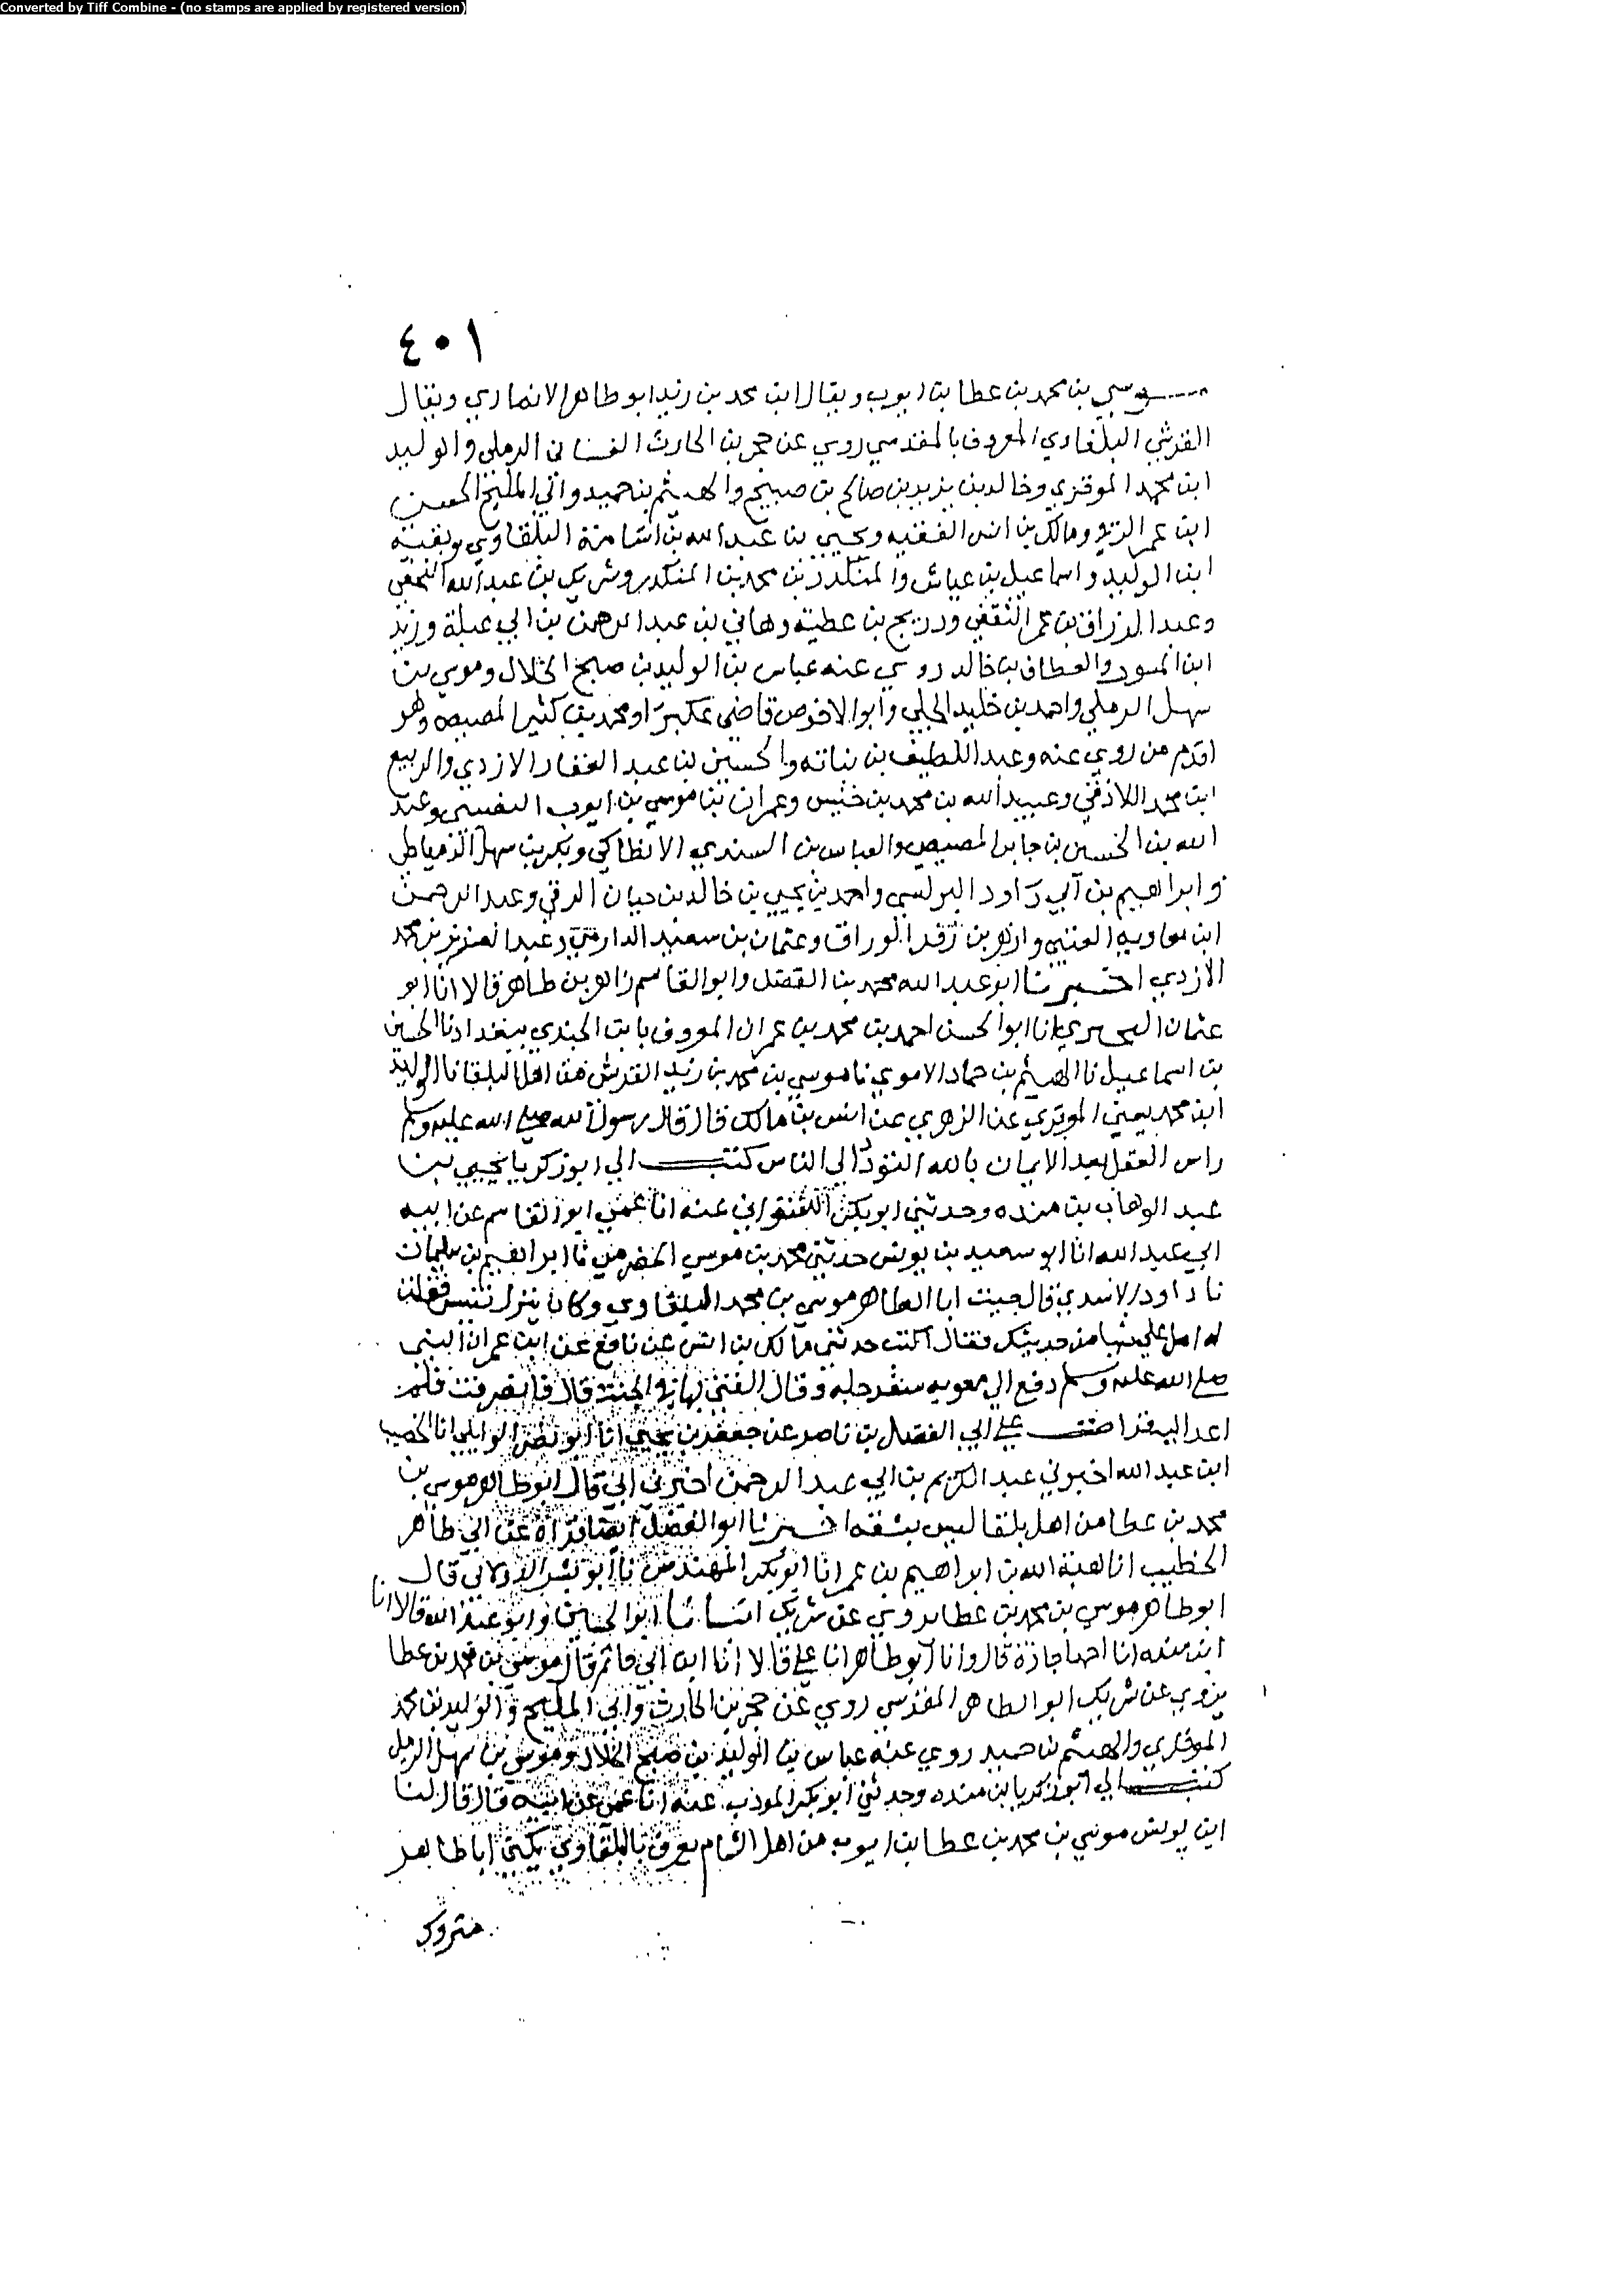 Converted by Tiff Combine - (no stamps are applied by registered version)
٤٠١
موسي بن محمد بن عطا بن ايوب ويقال ابن محمد بن زيد ابو طاهر الانصاري ويقال
القرشي البلقاوي المعروف بالمقدسي روي عن حجر بن الحارث الغساني الرملي والوليد
ابن محمد الموقري وخالد بن يزيد بن صالح بن صبيح والهيثم بن حميد وابي المليح الحسن
ابن عمر الرقي ومالك بن انس الفقيه ويحيي بن عبد الله بن اسامة البلقاوي وبقية
ابن الوليد واسماعيل بن عياش والمنكدر بن محمد بن المنكدر وشريك بن عبد الله النخعي
وعبد الرزاق بن عمر الثقفي ودريج بن عطية وهاني بن عبد الرحمن بن ابي عبلة وزيد
ابن المسور والعطاف بن خالد روي عنه عباس بن الوليد بن صبح الخلال وموسي بن
سهل الرملي واحمد بن خليد الحلبي وابو الاحوص قاضي عكبرا ومحمد بن كثير المصيصي وهو
اقدم من روي عنه وعبد اللطيف بن نباته والحسين بن عبد الغفار الازدي والربيع
ابن محمد اللاذقي وعبيد الله بن محمد بن خنيس وعمران بن موسي بن ايوب وعبد
الله بن الحسين بن جابر المصيصي والعباس بن السندي الانطاكي وبكر بن سهل الدمياطي
وابراهيم بن ابي داود البرلسي واحمد بن يحيي بن خالد بن حيان الرقي وعبد الرحمن
ابن معاويه العتبي وازهر بن زفر الوراق وعثمان بن سعيد الدارمي وعبد العزيز بن محمد
الازدي اخبرنا ابو عبد الله محمد بن الفضل وابو القاسم زاهر بن طاهر قالا انا ابو
عثمان البحيري انا ابو الحسن احمد بن محمد بن عمران المعروف بابن الجندي ببغداد نا الحسين
بن اسماعيل نا الهيثم بن حماد الاموي نا موسي بن محمد بن زيد القرشي من اهل البلقا نا الوليد
ابن محمد يعني الموقري عن الزهري عن انس بن مالك قال قال رسول الله صلي الله عليه وسلم
راس العقل بعد الايمان بالله التودد الي الناس كتب الي ابو زكريا يحيي بن
عبد الوهاب بن منده وحدثني ابو بكر اللفتواني عنه انا عمي ابو القاسم عن ابيه
ابي عبد الله انا ابو سعيد بن يونس حدثني محمد بن موسي الحضرمي نا ابراهيم بن سليمان
نا داود الاسدي قال جيت ابا الطاهر موسي بن محمد البلقاوي وكان ينزل تنيس فقلت
له امل علي شيا من حديثك فقال اكتب حدثني مالك بن انس عن نافع عن ابن عمر ان النبي
صلي الله عليه وسلم دفع الي معويه سفرجله وقال القني بها في الجنة قال فانصرفت فلم
اعد اليه قرات علي ابي الفضل بن ناصر عن جعفر بن يحيي انا ابو نصر الوايلي انا الخصيب
ابن عبد الله اخبرني عبد الكريم بن ابي عبد الرحمن اخبرني ابي قال ابو طاهر موسي بن
محمد بن عطا من اهل بلقا ليس بثقه اخبرنا ابو الفضل ايضا قراة عن ابي طاهر
الخطيب انا هبة الله بن ابراهيم بن عمر انا ابو بكر المهندس نا ابو بشر الدولابي قال
ابو طاهر موسي بن محمد بن عطا يروي عن شريك انبانا ابو الحسين وابو عبد الله قالا انا
ابن منده انا احمد اجازة قال وانا ابو طاهر انا علي قالا انا ابن ابي حاتم قال موسي بن محمد بن عطا
يروي عن شريك ابو الطاهر المقدسي روي عن حجر بن الحارث وابي المليح والوليد بن محمد
الموقري والهيثم بن حميد روي عنه عباس بن الوليد بن صبح الخلال وموسي بن سهل الرملي
كتب الي ابو زكريا بن منده وحدثني ابو بكر المودب عنه انا عمي عن ابيه قال قال لنا
ابن يونس موسي بن محمد بن عطا بن ايوب من اهل الشام يعرف بالبلقاوي يكني ابا طاهر
متروك